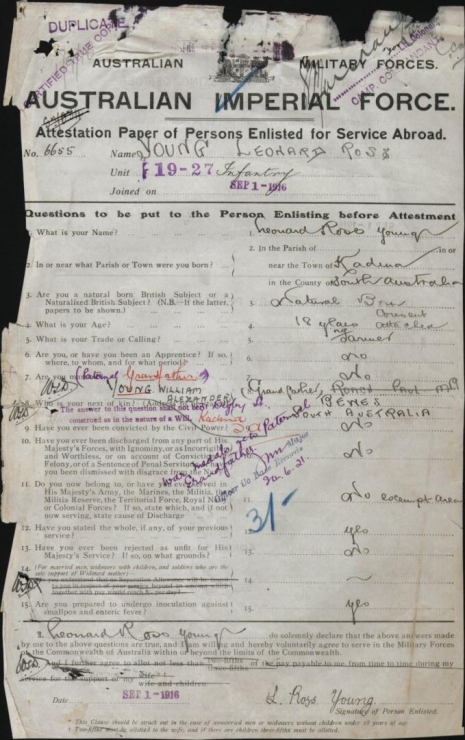 DUPLICATE
CERTIFIED TRUE COPY
AUSTRALIAN MILITARY FORCES.
AUSTRALIAN IMPERIAL FORCE.
Attestation Paper of Persons Enlisted for Service Abroad.
No. 6655 Name YOUNG LEONARD ROSS
Unit 19-27 Infantry
Joined on SEP 1-1916
Questions to be put to the Person Enlisting before Attestment
1. What is your Name? 1. Leonard Ross Young
2. In or near what Parish or Town were you born? 2. In the Parish of in or
near the Town of Kadina
in the County of South Australia
3. Are you a natural born British Subject or a
Naturalized British Subject? (N.B.—If the latter,
papers to be shown.) 3. Natural Born
4. What is your Age? 4. 18 years
5. What is your Trade or Calling? 5. Farmer
6. Are you, or have you been an Apprentice? If so,
where, to whom, and for what period? 6. No
7. Are you No
(Paternal Grandfather)
YOUNG WILLIAM
ALEXANDER
8. Who is your next of kin? (Grandfather,
The answer to this question shall not be
construed as in the nature of a Will. Kadina SOUTH AUSTRALIA
9. Have you ever been convicted by the Civil Power? No
10. Have you ever been discharged from any part of His
Majesty's Forces, with Ignominy, or as Incorrigible
and Worthless, or on account of Conviction of
Felony, or of a Sentence of Penal Servitude,
you been dismissed with disgrace from the Navy No
war medals etc to Paternal
Grandfather
Major
Officer i/c Base Records
30.6.21
11. Do you now belong to, or have you
His Majesty's Army, the Marines, the Militia,
Militia Reserve, the Territorial Force, Royal
or Colonial Forces? If so, state which, and if not
now serving, state cause of Discharge No exempt area
31/-
12. Have you stated the whole, if any, of your previous
service? 12. yes
13. Have you ever been rejected as unfit for His
Majesty's Service? If so, on what grounds? 13. No
14. (For married men, widowers with children, and soldiers who are the
sole support of Widowed mother)— 14.
15. Are you prepared to undergo inoculation against
smallpox and enteric fever? 15. yes
I, Leonard Ross Young do solemnly declare that the above answers made
by me to the above questions are true, and I am willing and hereby voluntarily agree to serve in the Military Forces
of the Commonwealth of Australia within or beyond the limits of the Commonwealth.
And I further agree to allot not less than of the pay payable to me from time to time during my
service for the support of my wife
wife and children
Date SEP 1-1916 L. Ross Young
Signature of Person Enlisted.
This Clause should be struck out in the case of unmarried men or widowers without children under 18 years of age.
Two-fifths must be allotted to the wife, and if there are children three-fifths must be allotted.